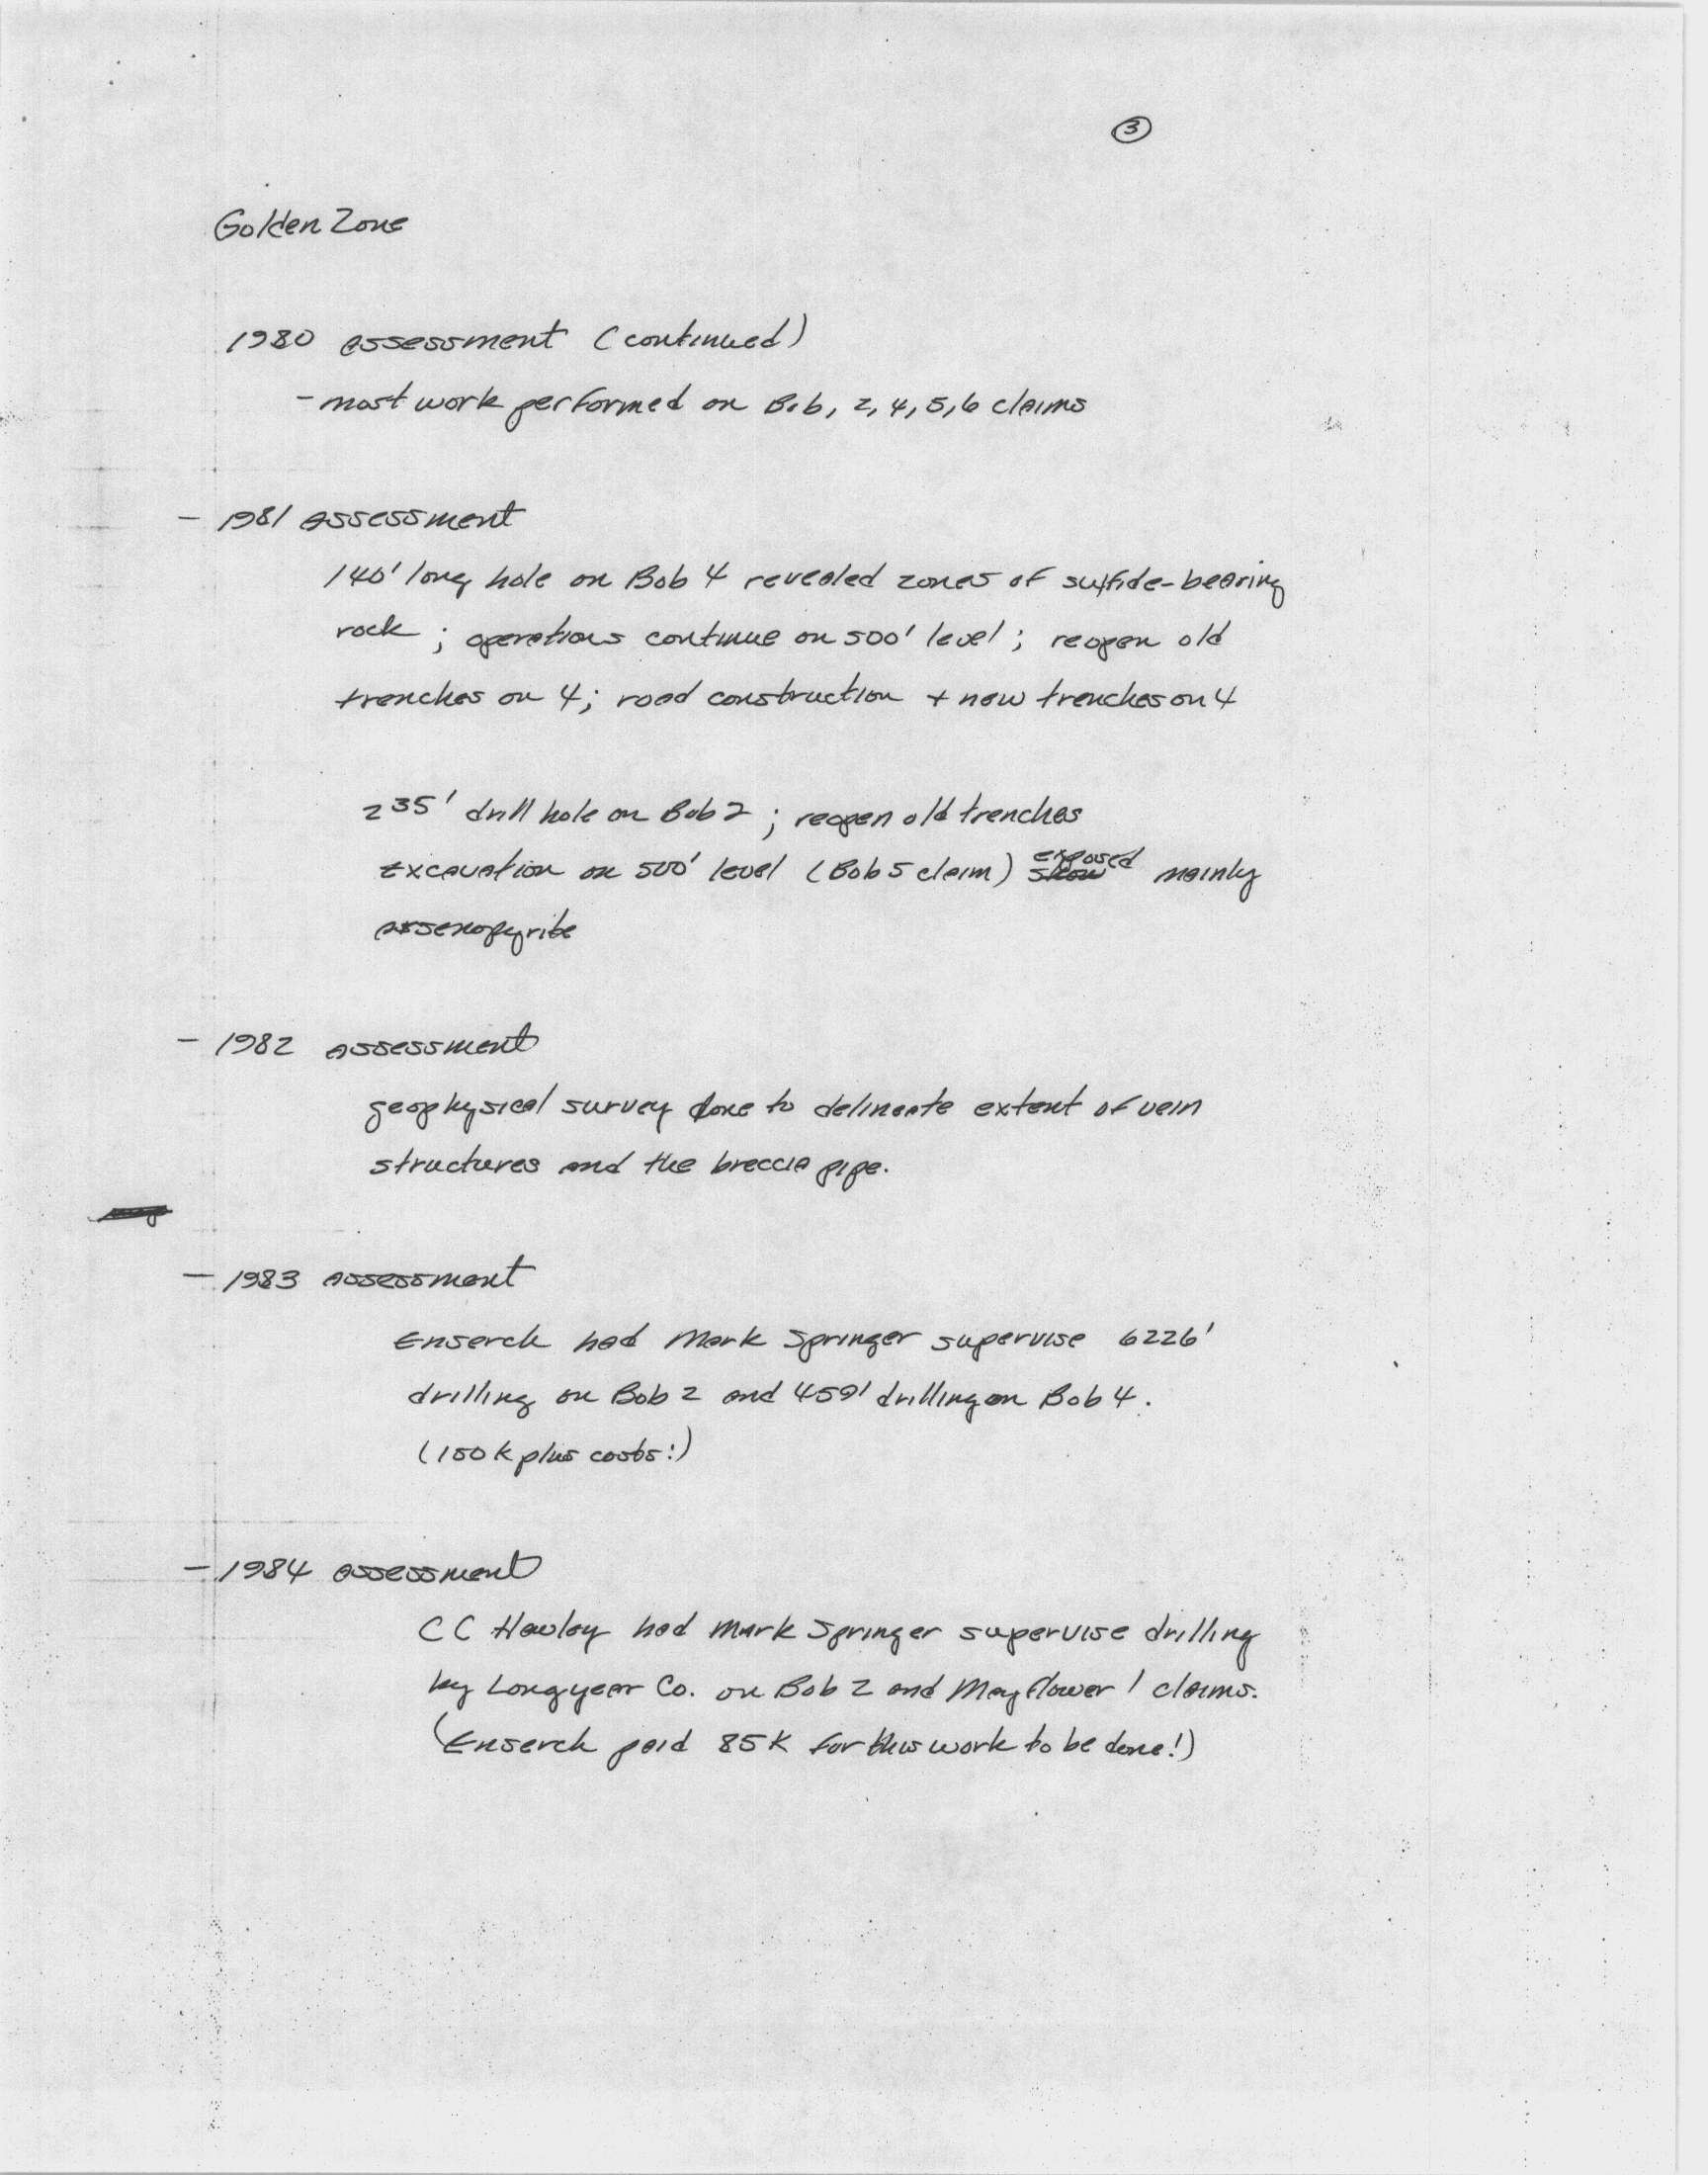 3
Golden Zone
1980 assessment (continued)
- most work performed on Bob, 2, 4, 5, 6 claims
- 1981 assessment
140' long hole on Bob 4 revealed zones of sulfide-bearing
rock ; operations continue on 500' level ; reopen old
trenches on 4; road construction + new trenches on 4
235' drill hole on Bob 2 ; reopen old trenches
Excavation on 500' level (Bob 5 claim) exposed mainly
arsenopyrite
- 1982 assessment
geophysical survey done to delineate extent of vein
structures and the breccia pipe.
- 1983 assessment
Enserch had Mark Springer supervise 6226'
drilling on Bob 2 and 459' drilling on Bob 4.
(150 K plus costs!)
- 1984 assessment
C C Hawley had Mark Springer supervise drilling
by Longyear Co. on Bob 2 and Mayflower 1 claims.
(Enserch paid 85K for this work to be done!)